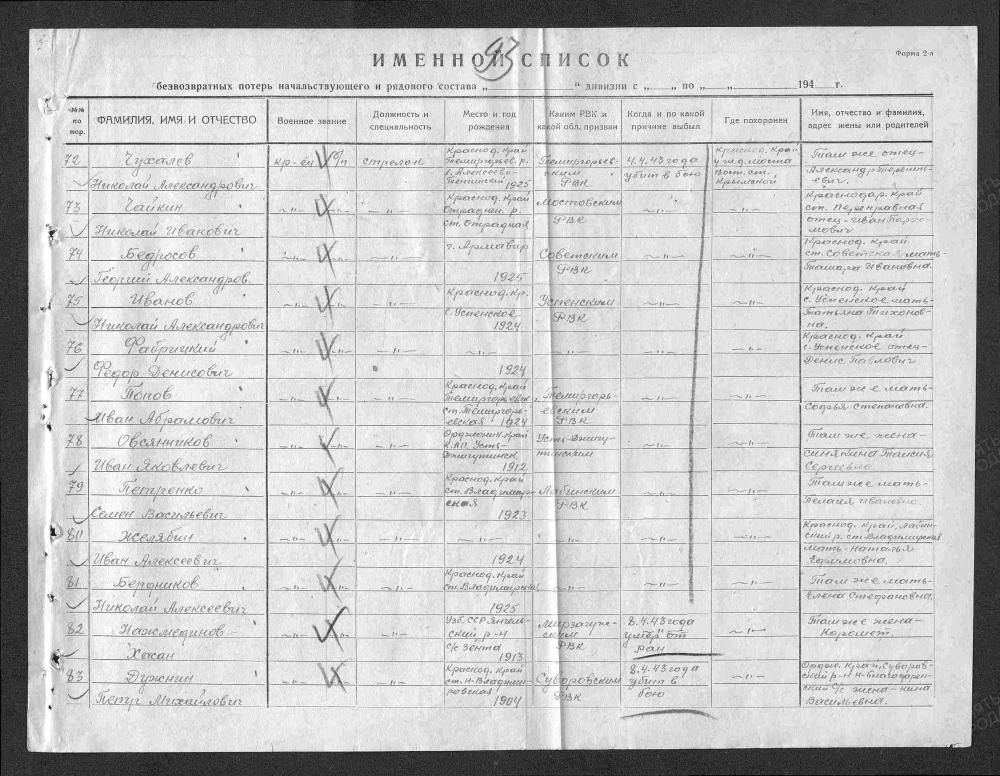 93
ИМЕННОЙ СПИСОК
Форма 2-л
безвозвратных потерь начальствующего и рядового состава „ " дивизии с „ „ по „ „ 194 г.
№№ по пор.
ФАМИЛИЯ, ИМЯ И ОТЧЕСТВО
Военное звание
Должность и специальность
Место и год рождения
Каким РВК и какой обл. призван
Когда и по какой причине выбыл
Где похоронен
Имя, отчество и фамилия, адрес жены или родителей
72 Чухалев Николай Александрович
кр-ец
стрелок
Краснод. Край Темиргоевск. р. 1925
Темиргоев-ским РВК
4.4.43 года убит в бою
Краснод. Край у ж.д. моста Вост. ст. Крымской
Там же отец- Александр Теренть-евич.
73 Чайкин Николай Иванович
–"– –"–
Краснод. Край Отраднен. р. ст. Отрадная
Мостовским РВК
–"– –"–
Краснодар. Край ст. Переправная отец-Иван
74 Бедросов Георгий Александров.
–"– –"–
г. Армавир 1925
Советским РВК
–"– –"–
Краснод. Край ст. Советская мать Тамара Ивановна.
75 Иванов Николай Александрович
–"– –"–
Краснод. Кр. с. Успенское 1924
Успенским РВК
–"– –"–
Краснод. Край с. Успенское мать- Татьяна Тихонов-на.
76 Фабрицкий Федор Денисович
–"– –"–
–"– 1924
–"–
–"– –"–
Краснод. Край с. Успенское отец- Денис Павлович
77 Попов Иван Абрамович
–"– –"–
Краснод. Край Темиргоевск. ст. Темиргоевская 1924
Темиргоевским РВК
–"– –"–
Там же мать- Софья Степановна.
78 Овсянников Иван Яковлевич
–"– –"–
Орджоник. Край Усть-Джигутинск 1912
Усть-Джигутинским
–"– –"–
Там же жена- Синякина Таисия Сергеевна
79 Петренко Семен Васильевич
–"– –"–
Краснод. Край ст. Владимирская 1923
Лабинским РВК
–"– –"–
Там же мать- Пелагея Ивановна.
80 Желябин Иван Алексеевич
–"– –"–
–"– 1924
–"–
–"– –"–
Краснод. Край, Лабин-ский р. ст. Владимирская мать-Наталья Ефимовна.
81 Бердников Николай Алексеевич
–"– –"–
Краснод. Край ст. Владимирская 1925
–"–
–"– –"–
Там же мать- Елена Стефановна.
82 Нажмединов Хасан
–"– –"–
Узб. ССР Янгель-ский р-н с/с Зента 1913
Мирзачуль-ским РВК
8.4.43 года умер от ран
–"–
Там же жена-
83 Дужнин Петр Михайлович
–"– –"–
Краснод. Край ст. Н-Владими-ровская 1904
Суворовским РВК
8.4.43 года убит в бою
–"–
Ордж. Край, Суворов-ский р-н Н-Благодарен-ский с/с жена- Васильевна.